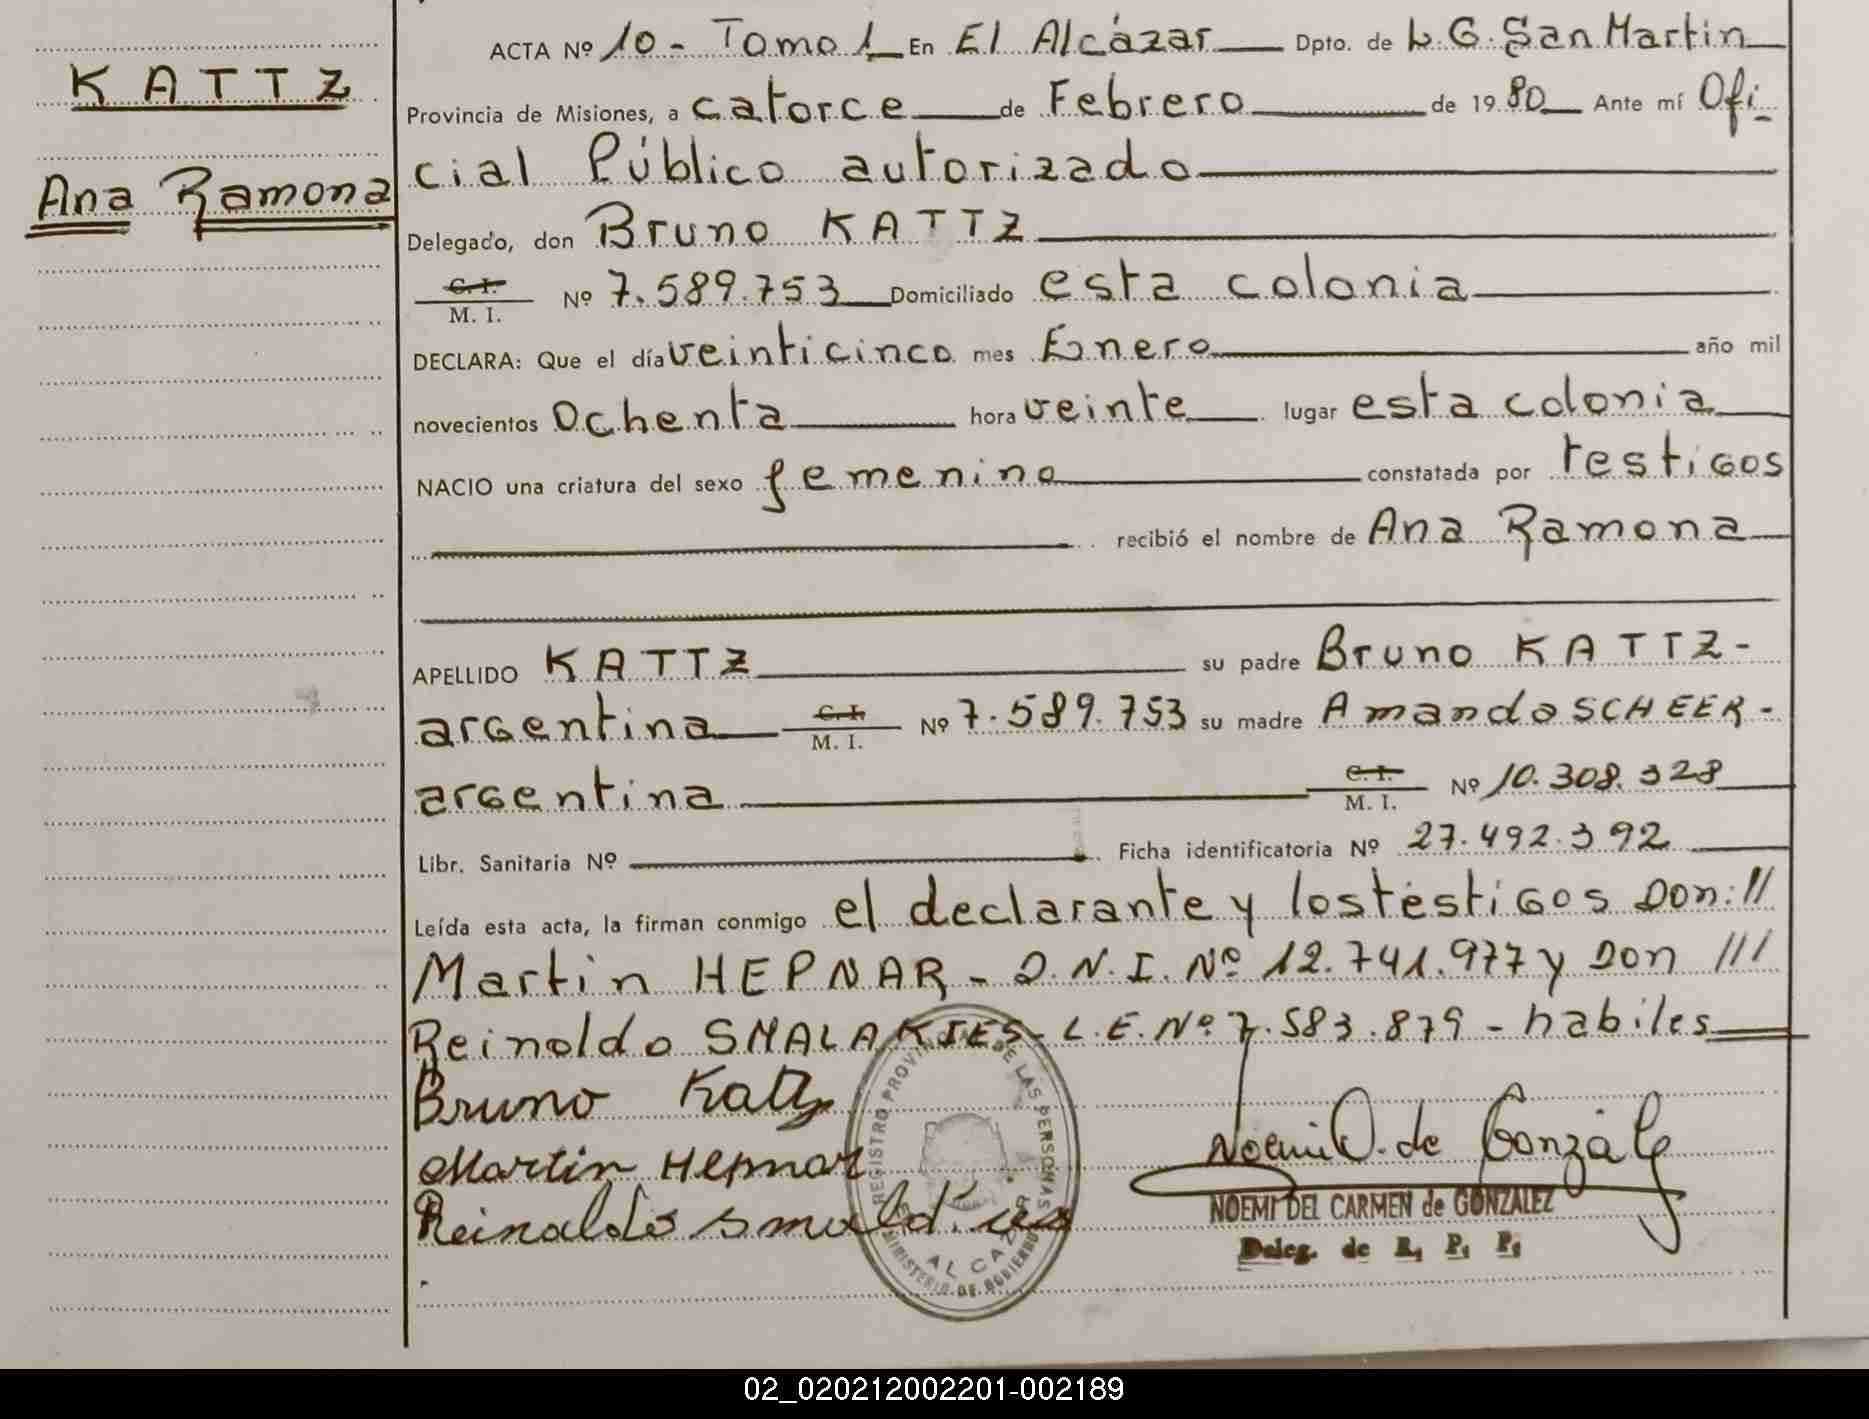 KATTZ
Ana Ramona
ACTA Nº 10 - Tomo 1 En El Alcázar Dpto. de L.G. San Martin
Provincia de Misiones, a catorce de Febrero de 1980 Ante mí Ofi
cial Público autorizado
Delegado, don Bruno KATTZ
C. I.
M. I. Nº 7.589.753 Domiciliado esta colonia
DECLARA: Que el día veinticinco mes Enero año mil
novecientos Ochenta hora veinte lugar esta colonia
NACIO una criatura del sexo femenino constatada por testigos
recibió el nombre de Ana Ramona
APELLIDO KATTZ su padre Bruno KATTZ -
argentina C. I. M. I. Nº 7.589.753 su madre Amanda SCHEER -
argentina C. I. M. I. Nº 10.308.328
Libr. Sanitaria Nº Ficha identificatoria Nº 27.492.392
Leída esta acta, la firman conmigo el declarante y los testigos Don: //
Martin HEPNAR - D.N.I. Nº 12.741.977 y Don ///
Reinoldo SMALAKIES - L.E. Nº 7.583.879 - habiles
Bruno Kattz
Martin Hepnar
Reinaldo
REGISTRO PROVINCIAL DE LAS PERSONAS
MINISTERIO DE GOBIERNO
EL ALCAZAR
Noemi D. de González
NOEMI DEL CARMEN de GONZALEZ
Deleg. de R. P. P.
02_020212002201-002189